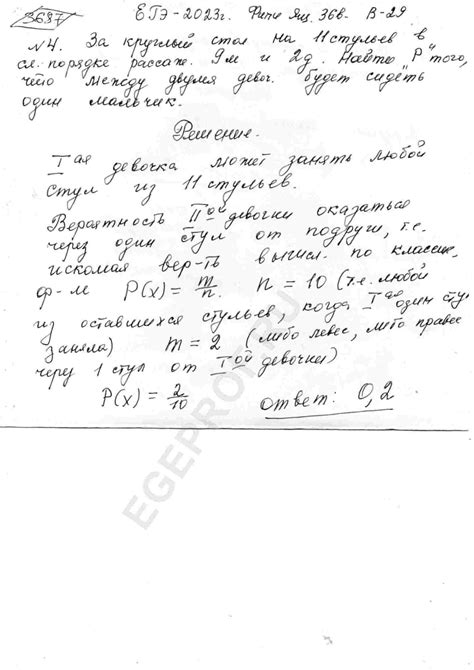 3697
ЕГЭ-2023г. Фипи Ящ. 36в. В-29
№4. За круглый стол на 11 стульев в
сл. порядке рассаж. 9м и 2д. Найти "Р" того,
что между двумя девоч. будет сидеть
один мальчик.
Решение.
Iая девочка может занять любой
стул из 11 стульев.
Вероятность IIой девочки оказаться
через один стул от подруги, т.е.
искомая вер-ть вычисл. по классич.
ф-ле P(x) = m/n. n = 10 (т.е. любой
из оставшихся стульев, когда Iая один сту
заняла) m = 2 (либо левее, либо правее
через 1 стул от Iой девочки)
P(x) = 2/10 ответ: 0,2
EGEPROF.RU